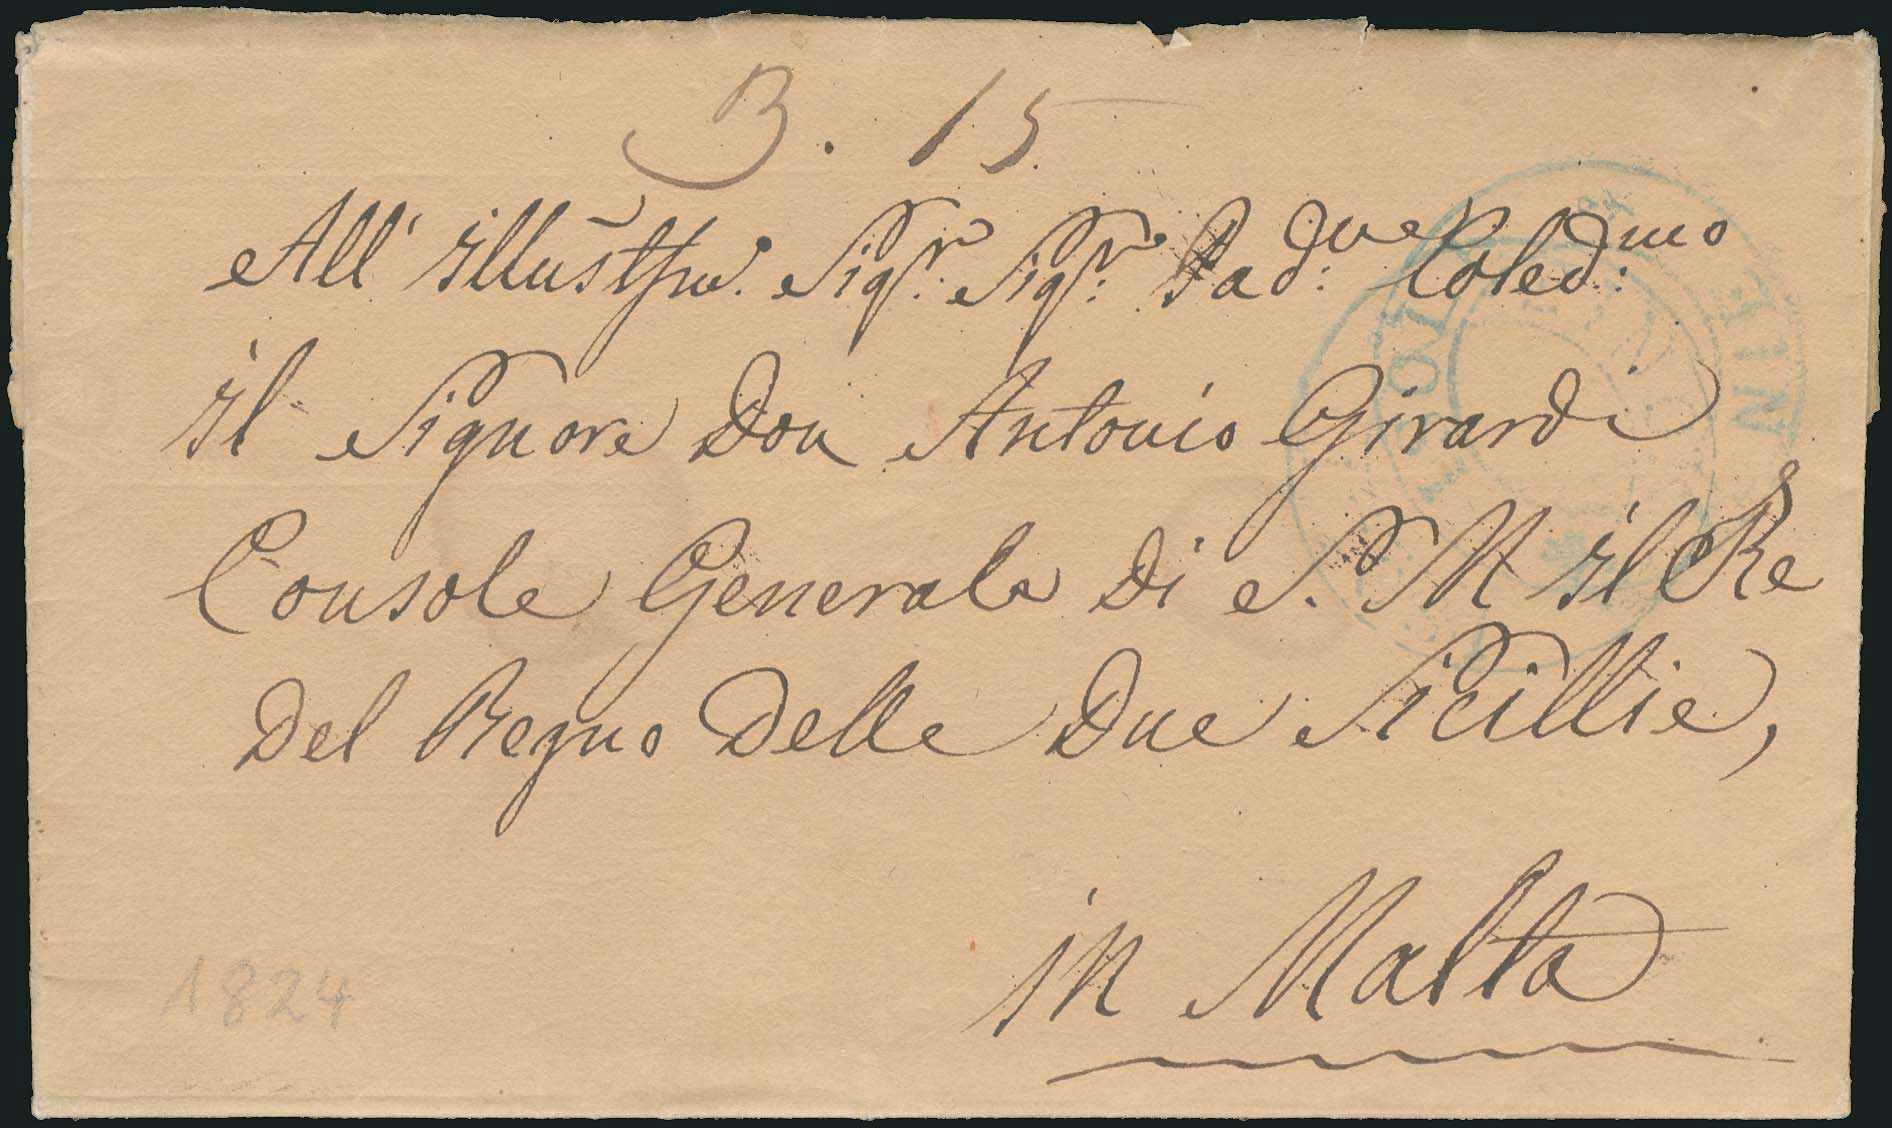 B. 15
All' Illustmo. Sigr. Sigr: Pad:ne Coled:mo
il Signore Don Antonio Girardi
Console Generale Di S. M il Re
Del Regno Delle Due Sicillie,
in Malta
1824